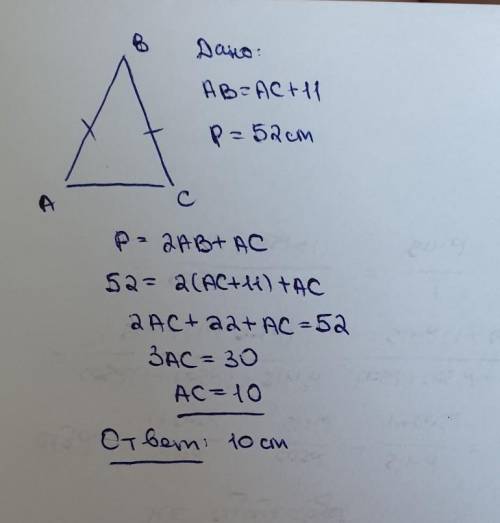 B
Дано:
AB=AC+11
P=52см
A
C
P=2AB+AC
52=2(AC+11)+AC
2AC+22+AC=52
3AC=30
AC=10
Ответ: 10см